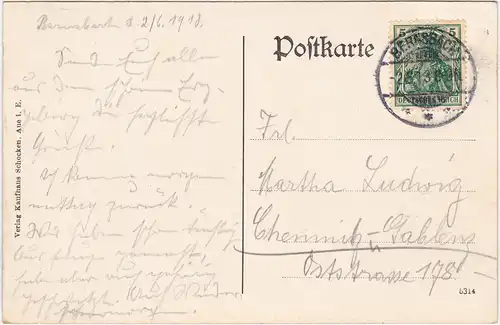 Bernsbach d. 2/6. 1913.
Sendet Euch allen
aus dem schönen Erz-
gebirg die herzlichsten
Grüße.
Ich komme morgen
mittag zurück.
Wir haben schon tüchtig
gemacht,
habe aber
Auf Wieder
Verlag Kaufhaus Schocken, Aue i. E.
Postkarte
5 5
BERNSBACH
DEUTSCHES REICH
Frl.
Martha Ludwig
Chemnitz-Gablenz
Oststrasse 178
5314